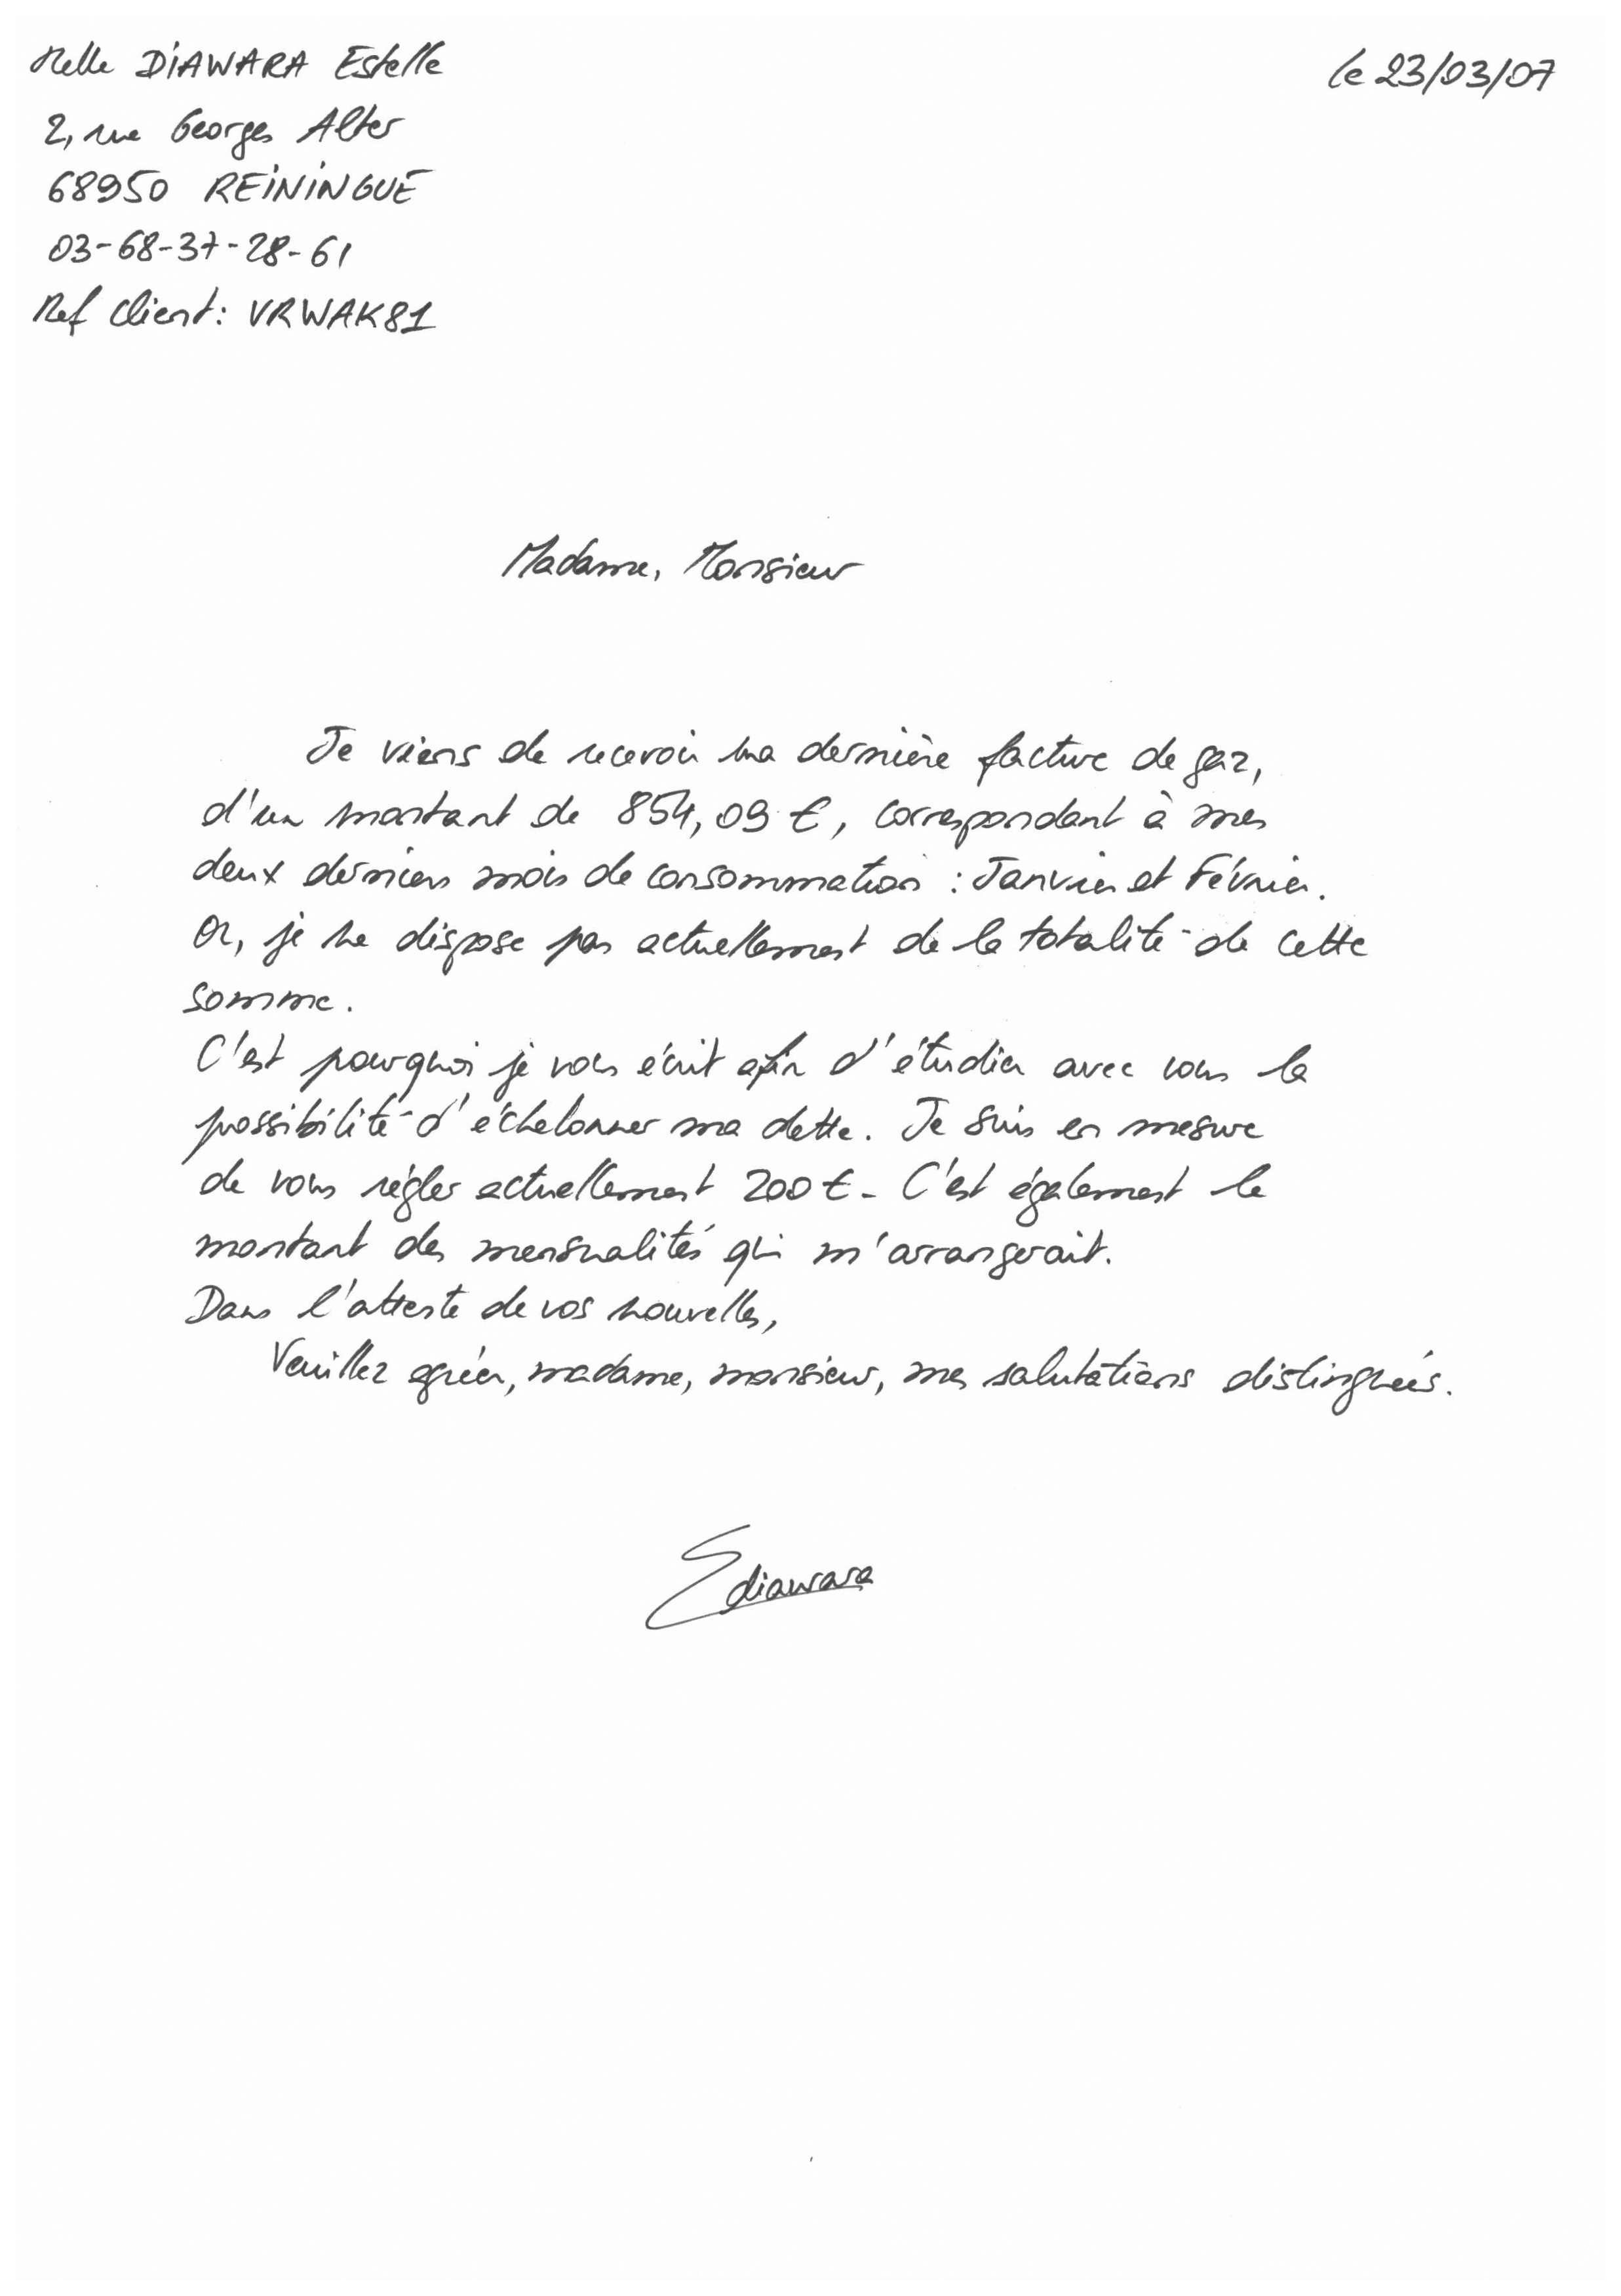 Melle DIAWARA Estelle
le 23/03/07
2, rue Georges Alter
68950 REININGUE
03-68-37-28-61
Ref Client: VRWAK81
Madame, Monsieur
Je viens de recevoir ma dernière facture de gaz,
d'un montant de 854,09 €, correspondant à mes
deux derniers mois de consommation : Janvier et Février.
Or, je ne dispose pas actuellement de la totalité de cette
somme.
C'est pourquoi je vous écrit afin d'étudier avec vous la
possibilité d'échelonner ma dette. Je suis en mesure
de vous régler actuellement 200 €. C'est également le
montant des mensualités qui m'arrangerait.
Dans l'attente de vos nouvelles,
Veuillez agréer, madame, monsieur, mes salutations distinguées.
Ediawara